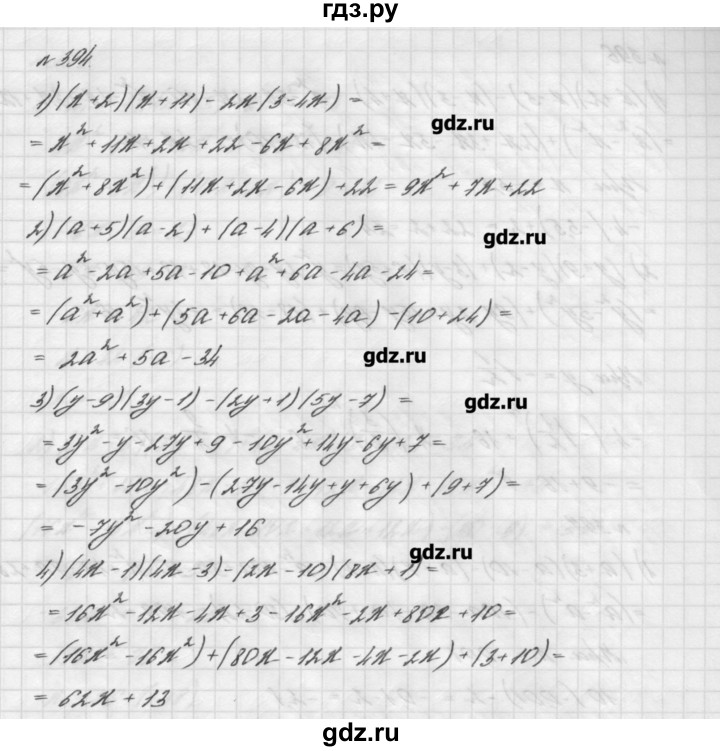 гдз.ру
№394
1) (x+2)(x+11)-2x(3-4x)=
= x²+11x+2x+22-6x+8x²=
gdz.ru
=(x²+8x²)+(11x+2x-6x)+22=9x²+7x+22
2) (a+5)(a-2)+(a-4)(a+6)=
gdz.ru
= a²-2a+5a-10+a²+6a-4a-24=
=(a²+a²)+(5a+6a-2a-4a)-(10+24)=
= 2a²+5a-34
gdz.ru
3) (y-9)(3y-1)-(2y+1)(5y-7) =
gdz.ru
=3y²-y-27y+9-10y²+14y-6y+7=
=(3y²-10y²)-(27y-14y+y+6y)+(9+7)=
= -7y²-20y+16
gdz.ru
4) (4x-1)(4x-3)-(2x-10)(8x+1)=
=16x²-12x-4x+3-16x²-2x+80x+10=
=(16x²-16x²)+(80x-12x-4x-2x)+(3+10)=
= 62x+13
gdz.ru